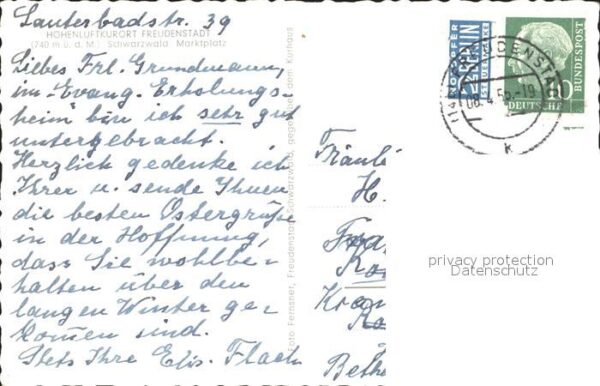 Lauterbadstr. 39
HÖHENLUFTKURORT FREUDENSTADT
(740 m ü. d. M.) Schwarzwald Marktplatz
Liebes Frl. Grundmann,
im Evang. Erholungs-
heim bin ich sehr gut
untergebracht.
Herzlich gedenke ich
Ihrer u. sende Ihnen
die besten Ostergrüße
in der Hoffnung,
dass Sie wohlbe-
halten über den
langen Winter ge-
kom̄en sind.
Stets Ihre Elis. Flach
Foto Fernsner, Freudenstadt/Schwarzwald, gegenüber dem Kurhaus
NOTOPFER
2 BERLIN
STEUERMARKE
DEUTSCHE
BUNDESPOST
FREUDENSTADT
08.4.
k
Fräul
H.
Kran
Beth
privacy protection
Datenschutz